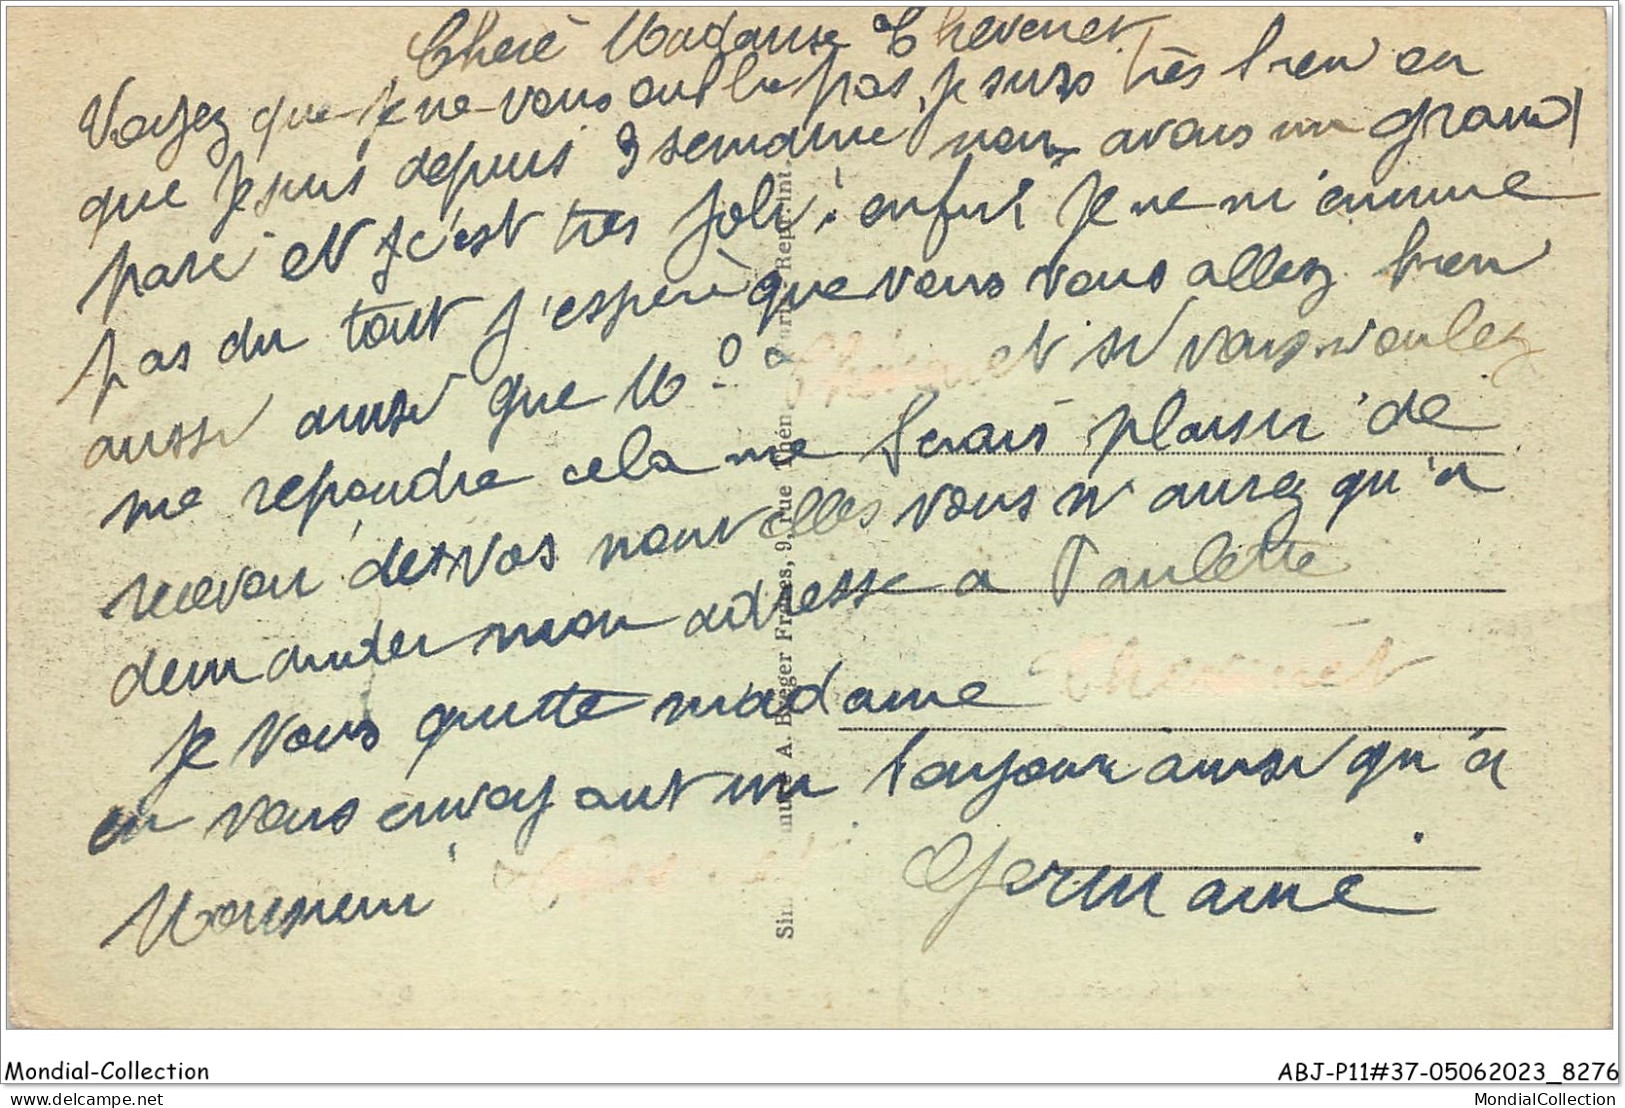 Cherè Madame Chevenet
Voyez que je ne vous oublie pas, je suis très bien en
que je suis depuis 3 semaine nous avons un grand
parc et c'est tres joli; enfin je ne m'ennuie
pas du tout j'espère que vous vous allez bien
aussi ainsi que Mo et si vous voulez
me repondre cela me ferais plaisir de
recevoir des vos nouvelles vous n'aurez qu'a
demander mon adresse a Paulette
je vous quitte madame Chevenet
en vous envoyant un bonjour ainsi qu'à
Monsieur
Germaine
A. Breger Frères, 9, rue Thénard, Paris. Repr. int.
Mondial-Collection
ABJ-P11#37-05062023_8276
www.delcampe.net
MondialCollection